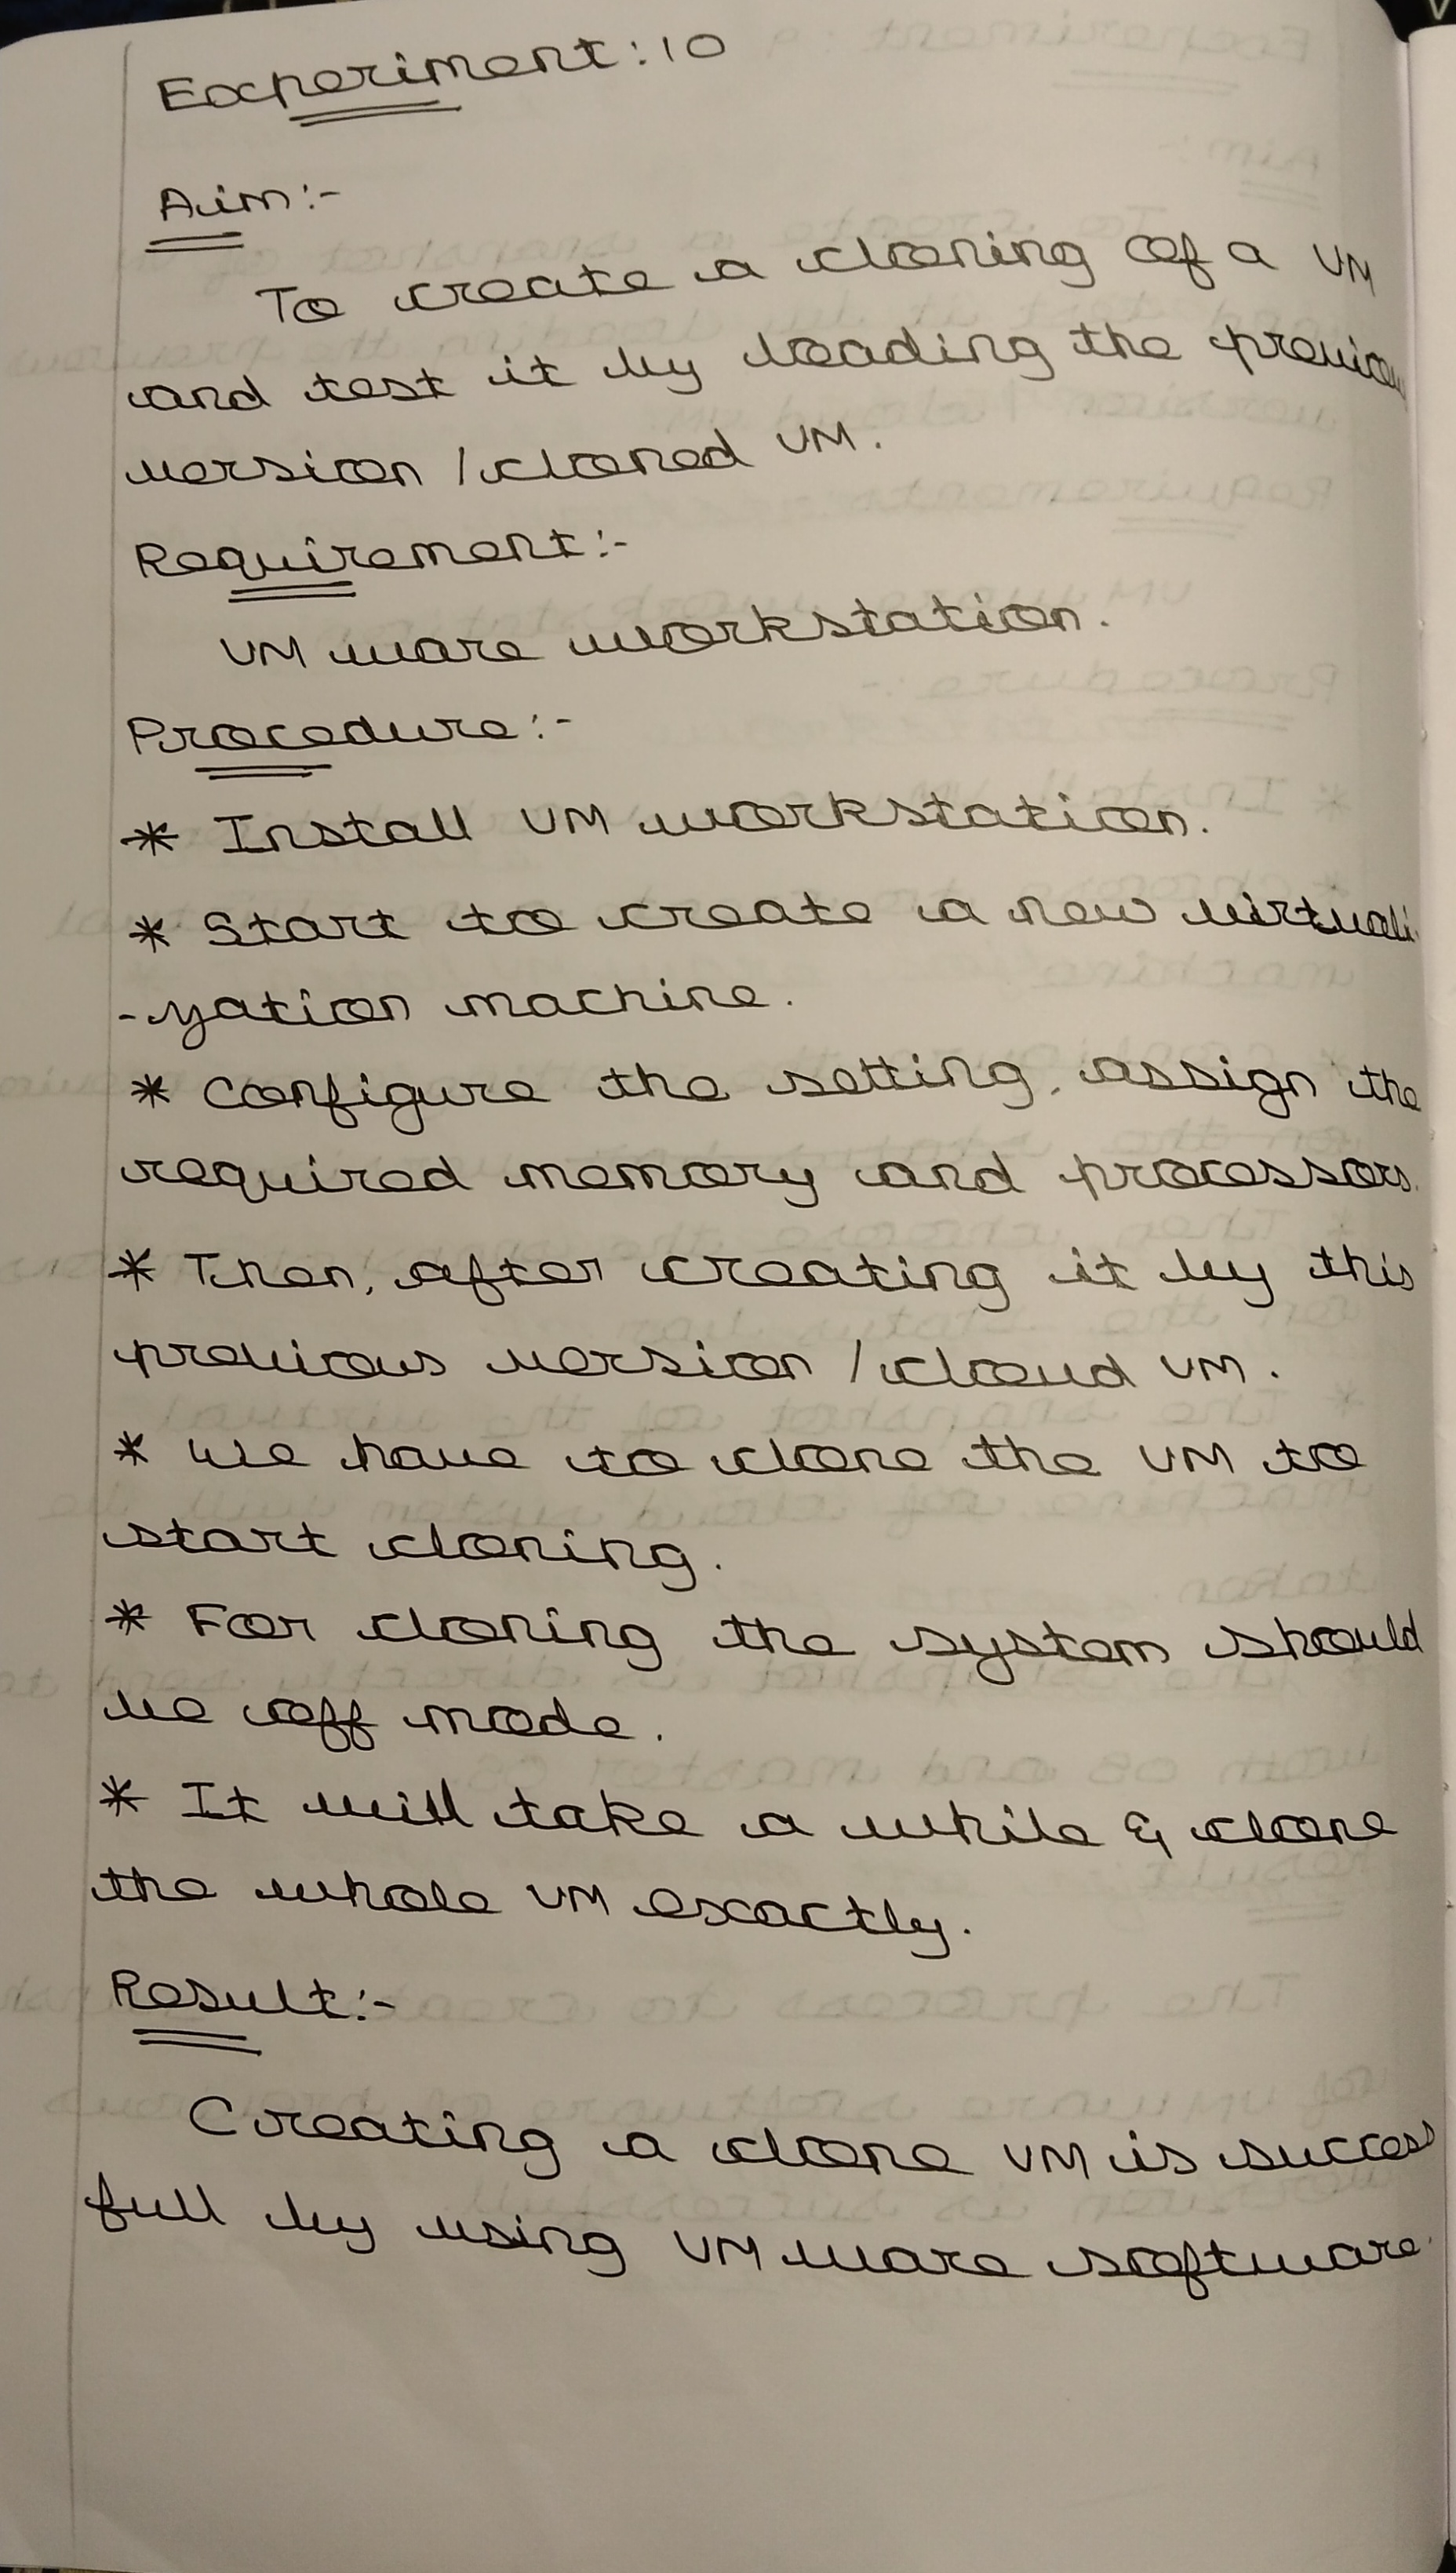 Experiment: 10
Aim:-
To create a cloning of a VM
and test it by loading the previous
version / cloned VM.
Requirement:-
VM ware workstation.
Procedure:-
* Install VM workstation.
* Start to create a new virtuali
-zation machine.
* configure the setting, assign the
required memory and processors.
* Then, after creating it by this
previous version / cloud VM.
* we have to clone the VM to
start cloning.
* For cloning the system should
be off mode.
* It will take a while & clone
the whole VM exactly.
Result:-
Creating a clone VM is success
full by using VM ware software.